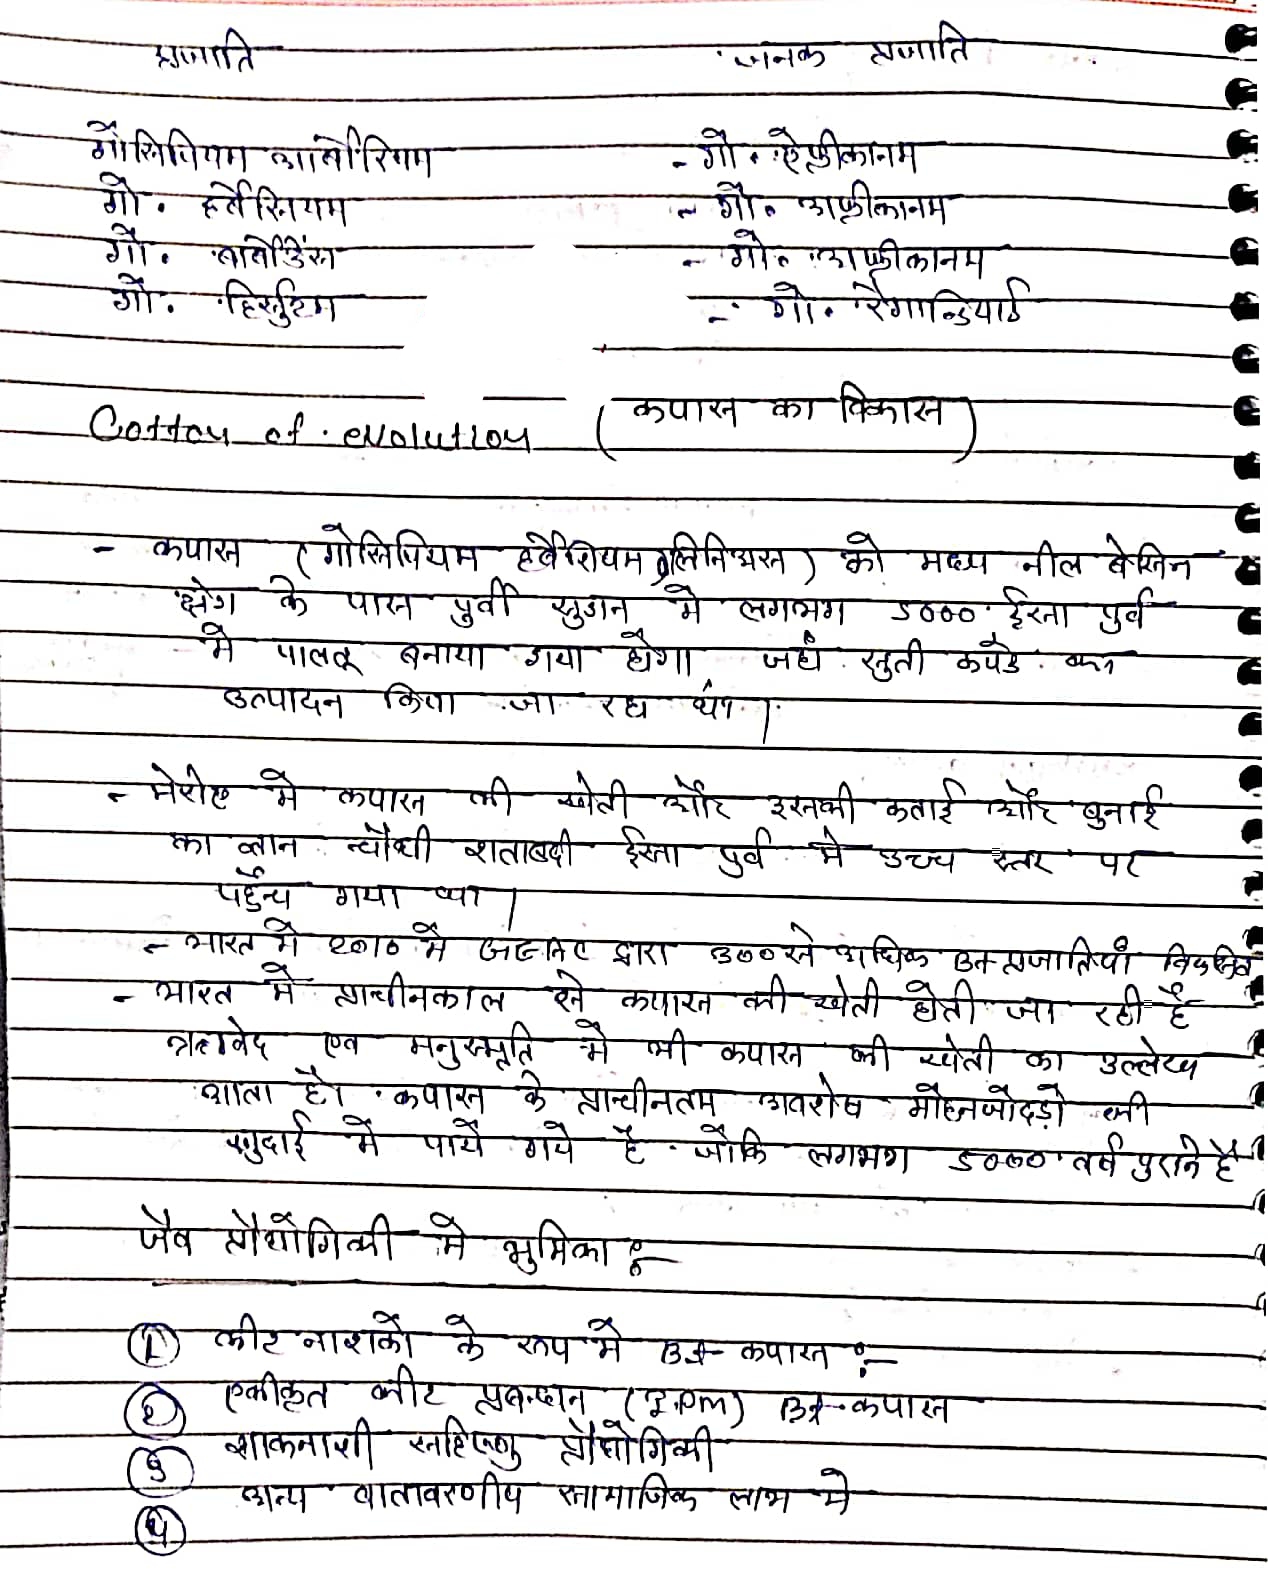 प्रजाति जनक प्रजाति
गौसिपियम आर्बोरियम - गौ. ऐफ्रीकानम
गौ. हर्बेसियम - गौ. अफ्रीकानम
गौ. बार्बेडेंस - गौ. अफ्रीकानम
गौ. हिर्सुटम - गौ. रैगान्डियाई
Cotton of evolution (कपास का विकास)
- कपास (गोसिपियम हर्बेशियम लिनिअस) को मध्य नील बेसिन
क्षेत्र के पास पुर्वी सुडान मे लगभग 5000 ईसा पुर्व
मे पालतू बनाया गया होगा जहाँ सुती कपडे का
उत्पादन किया जा रहा था।
- मेरोए मे कपास की खेती और इसकी कताई और बुनाई
का ज्ञान चौथी शताबदी ईसा पुर्व मे उच्च स्तर पर
पहुँच गया था।
- भारत मे 2010 मे द्वारा 300 से अधिक Bt प्रजातियाँ विकसित
- भारत मे प्राचीनकाल से कपास की खेती होती जा रही है
ऋगवेद एव मनुस्मृति मे भी कपास की खेती का उल्लेख
आता है। कपास के प्राचीनतम अवशेष मोहनजोदड़ो की
खुदाई मे पाये गये है जोकि लगभग 5000 वर्ष पुराने है
जैव प्रौद्योगिकी मे भुमिका :-
1 कीट नाशको के रूप मे Bt कपास :-
2 एकीकृत कीट प्रबन्धन (I.Pm) Bt कपास
3 शाकनाशी सहिष्णु प्रौद्योगिकी
4 अन्य वातावरणीय सामाजिक लाभ मे